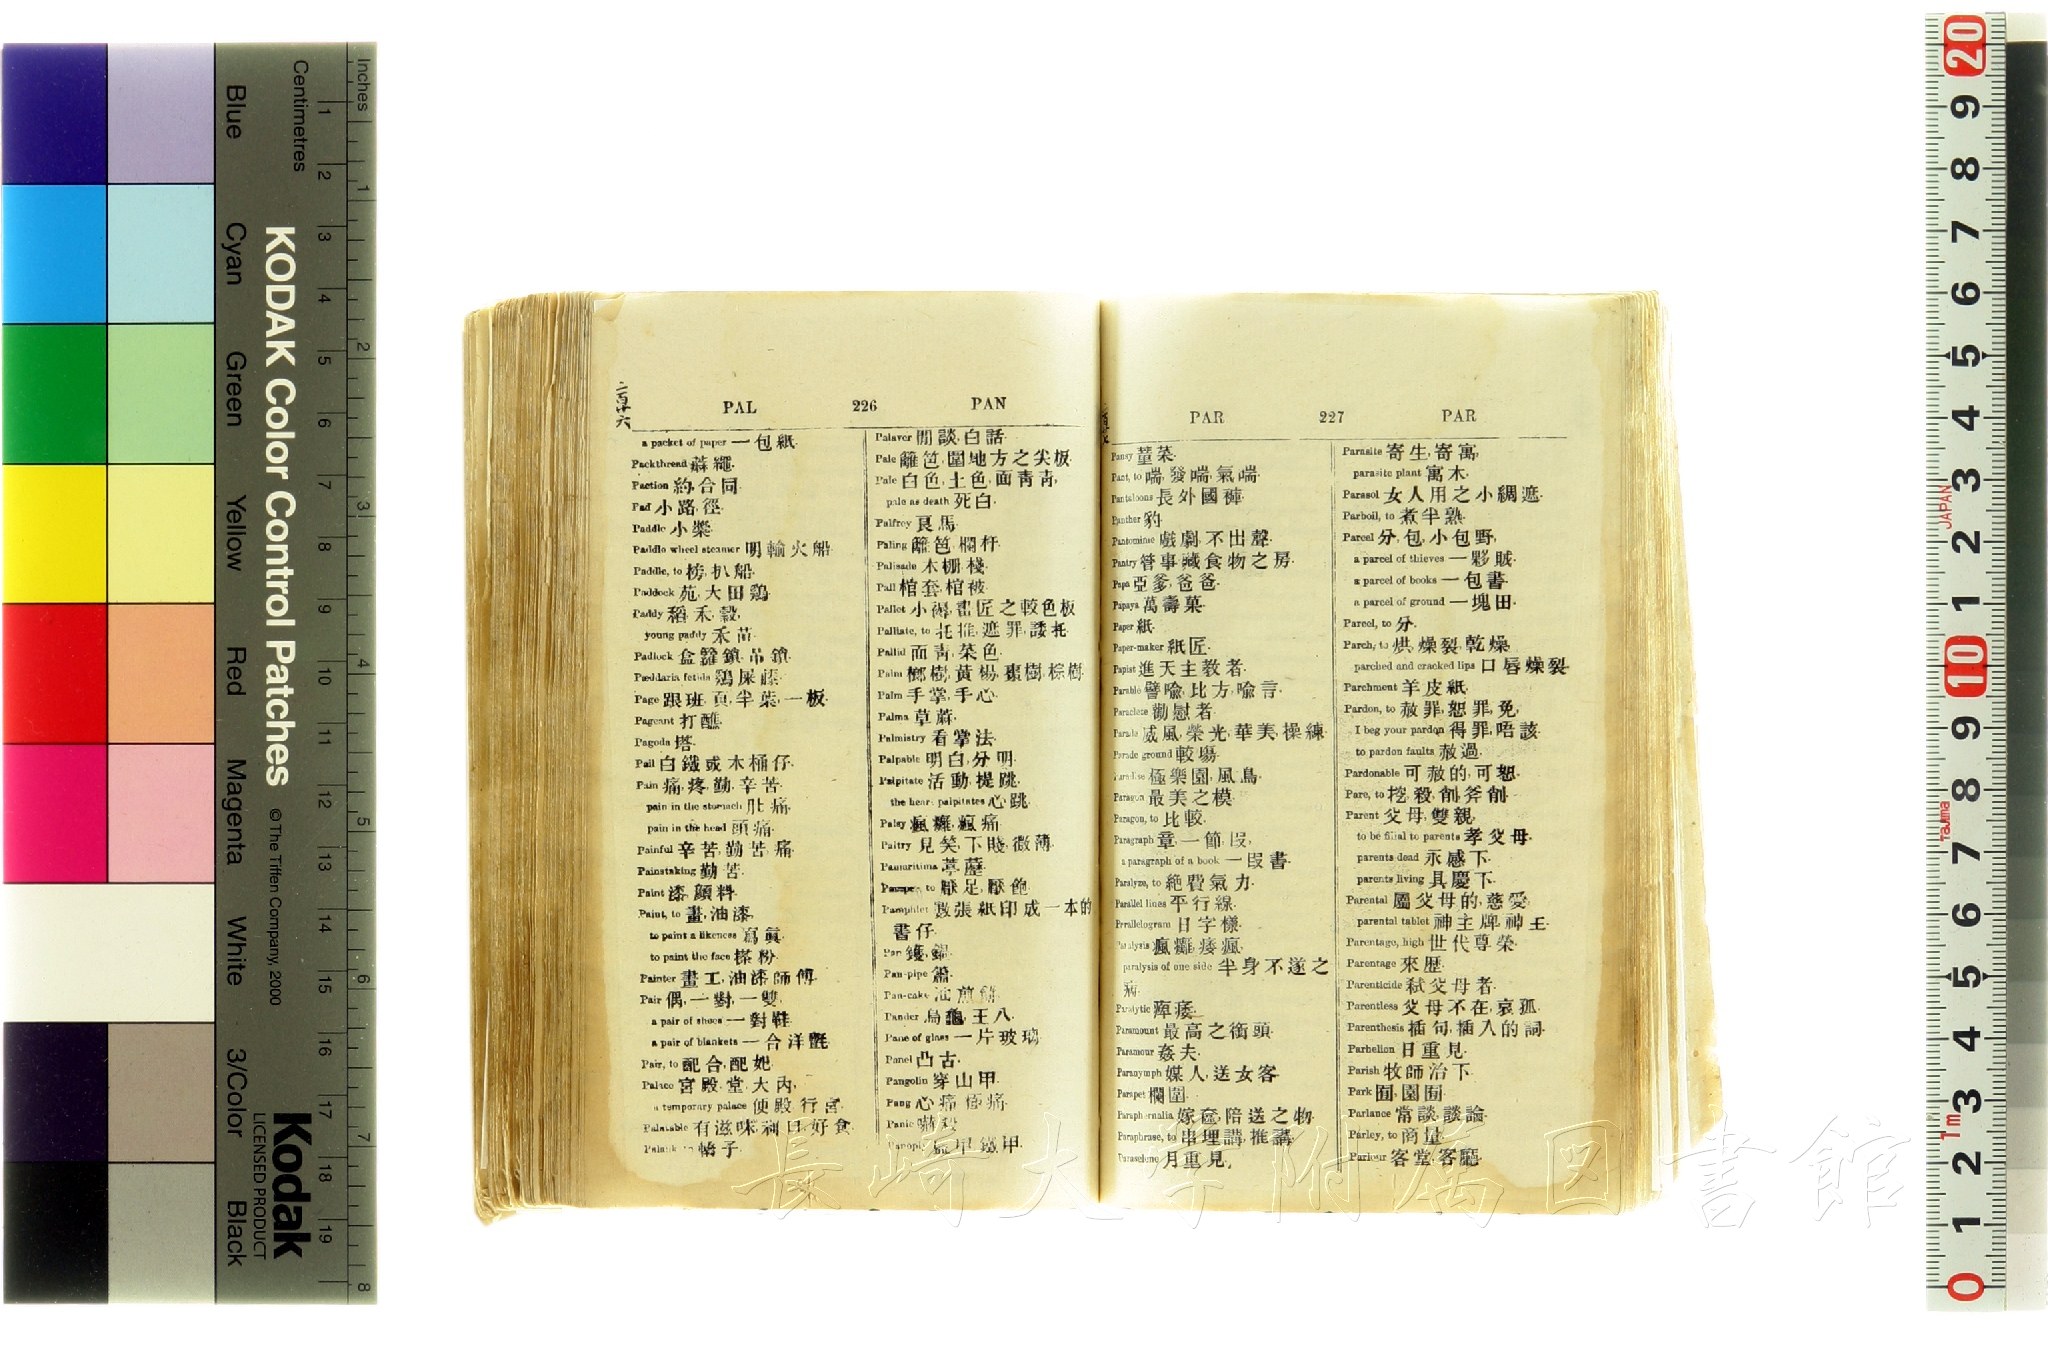 Inches
Centimetres
KODAK Color Control Patches
© The Tiffen Company, 2000
Kodak
LICENSED PRODUCT
Blue
Cyan
Green
Yellow
Red
Magenta
White
3/Color
Black
二百廿六
PAL 226 PAN
a packet of paper 一包紙.
Packthread 蔴繩.
Paction 約,合同.
Pad 小路,徑.
Paddle 小槳.
Paddle wheel steamer 明輪火船.
Paddle, to 榜,扒船.
Paddock 苑,大田鷄.
Paddy 稻,禾,穀,
young paddy 禾苗.
Padlock 盒鑼鎖,吊鎖.
Pæddaria fetida 鷄屎藤.
Page 跟班,頁,半葉,一板.
Pageant 打醮.
Pagoda 塔.
Pail 白鐵或木桶仔.
Pain 痛,疼,勤,辛苦.
pain in the stomach 肚痛.
pain in the head 頭痛.
Painful 辛苦,勤苦,痛.
Painstaking 勤苦.
Paint 漆,顏料.
Paint, to 畫,油漆,
to paint a likeness 寫眞.
to paint the face 搽粉.
Painter 畫工,油漆師傅.
Pair 偶,一對,一雙,
a pair of shoes 一對鞋.
a pair of blankets 一合洋氈.
Pair, to 配合,配她.
Palace 宮殿,堂,大內,
a temporary palace 使殿,行宮.
Palatable 有滋味,利口,好食.
轎子.
Palaver 閒談,白話.
Pale 籬笆,圍地方之尖板.
Pale 白色,土色,面靑靑,
pale as death 死白.
Palfrey 良馬.
Paling 籬笆,欄杆.
Palisade 木柵,棧.
Pall 棺套,棺被.
Pallet 小褥,畫匠之較色板.
Palliate, to 托推,遮罪,諉托.
Pallid 面靑,菜色.
Palm 榔樹,黃楊,棗樹,棕樹.
Palm 手掌,手心.
Palma 草蔴.
Palmistry 看掌法.
Palpable 明白,分明.
Palpitate 活動,提跳.
the heart palpitates 心跳.
Palsy 瘋癱,瘋痛.
Paltry 見笑,下賤,微薄.
Pamuritima 葶藶.
to 厭足,厭飽.
Pamphlet 數張紙印成一本的
書仔.
Pan 鑊,鍋.
Pan-pipe 簫.
Pan-cake 油煎餅.
Pander 烏龜,王八.
Pane of glass 一片玻璃.
Panel 凸古.
Pangolin 穿山甲.
Pang 心痛,疼痛.
Panic
甲,鐵甲.
PAR 227 PAR
Pansy 堇菜.
Pant, to 喘,發喘,氣喘.
Pantaloons 長外國褲.
Panther 豹.
Pantomime 戲劇,不出聲.
Pantry 管事藏食物之房.
Papa 亞爹,爸爸.
Papaya 萬壽菓.
Paper 紙.
Paper-maker 紙匠.
Papist 進天主教者.
Parable 譬喻,比方,喻言.
Paraclete 勸慰者.
Parade 威風,榮光,華美,操練.
Parade ground 較塲.
Paradise 極樂園,風鳥.
Paragon 最美之模.
Paragon, to 比較.
Paragraph 章,一節,段,
a paragraph of a book 一段書.
Paralyze, to 絶費氣力.
Parallel lines 平行線.
Prrallelogram 日字樣.
Paralysis 瘋癱,痿瘋.
paralysis of one side 半身不遂之
病.
Paralytic 癉痿.
Paramount 最高之銜頭.
Paramour 姦夫.
Paranymph 媒人,送女客.
Parapet 欄圍.
Paraphernalia 嫁奩,陪送之物.
Paraphrase, to 串理講,推講.
Paraselene 月重見.
Parasite 寄生,寄寓,
parasite plant 寓木.
Parasol 女人用之小綢遮.
Parboil, to 煮半熟.
Parcel 分,包,小包野,
a parcel of thieves 一夥賊.
a parcel of books 一包書.
a parcel of ground 一塊田.
Parcel, to 分.
Parch, to 烘,燥裂,乾燥,
parched and cracked lips 口唇燥裂.
Parchment 羊皮紙.
Pardon, to 赦罪,恕罪,免,
I beg your pardon 得罪,唔該.
to pardon faults 赦過.
Pardonable 可赦的,可恕.
Pare, to 挖,殺,削,斧削.
Parent 父母,雙親,
to be filial to parents 孝父母.
parents dead 永感下.
parents living 具慶下.
Parental 屬父母的,慈愛.
parental tablet 神主牌,神主.
Parentage, high 世代尊榮.
Parentage 來歷.
Parenticide 弑父母者.
Parentless 父母不在,哀孤.
Parenthesis 插句,插入的詞.
Parhelion 日重見.
Parish 牧師治下.
Park 囿,園囿.
Parlance 常談,談論.
Parley, to 商量.
Parlour 客堂,客廳.
長崎大学附属図書館
JAPAN
Tajima
1m